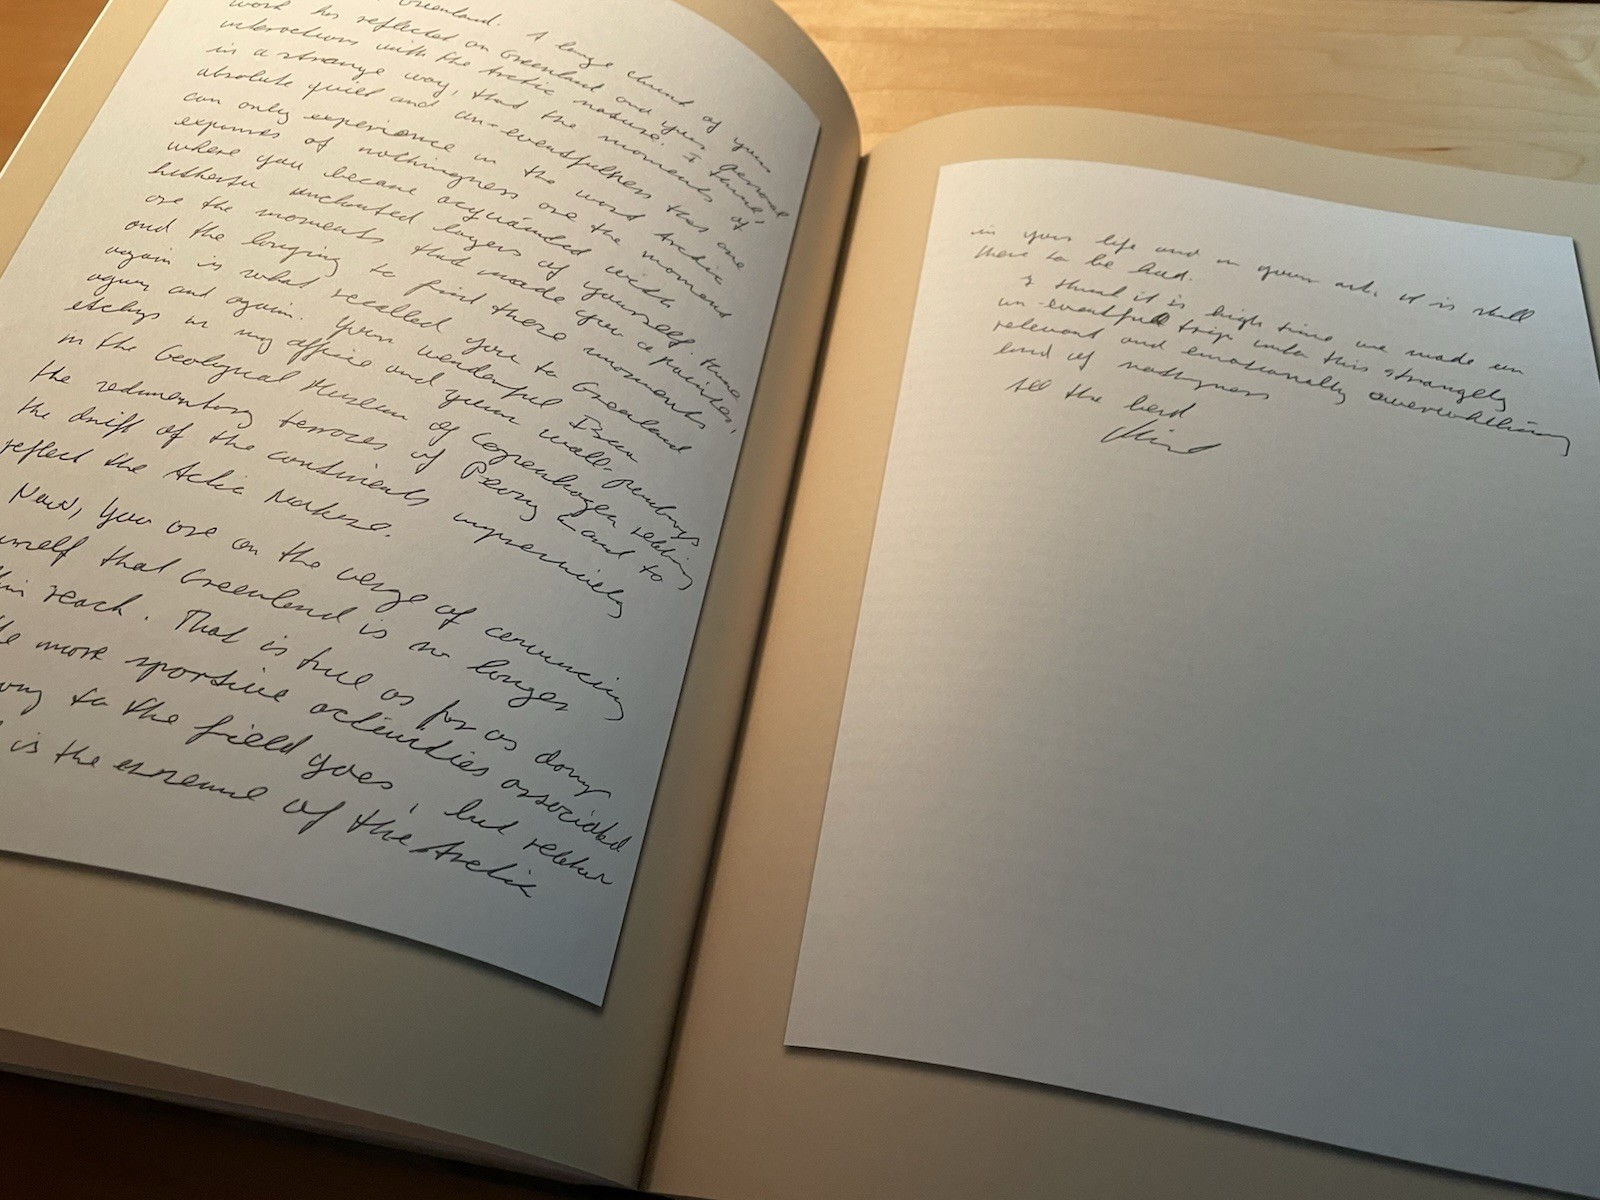 Greenland. A large chunk of your
work has reflected on Greenland and your general
interactions with the Arctic nature. I think,
in a strange way, that the moments of
absolute quiet and un-eventfulness that one
can only experience in the Arctic
expanses of nothingness are the moment
where you became acquainted with
hitherto uncharted layers of yourself. These
are the moments that made you a painter,
and the longing to find these moments
again is what recalled you to Greenland
again and again. Your wonderful Isua
etchings in my office and your wall-paintings
in the Geological Museum of Copenhagen relating
the sedimentary terraces of Peary Land to
the drift of the continents impressively
reflect the Arctic Nature.
Now, you are on the verge of convincing
that Greenland is no longer
reach. That is true as far as
more sportive activities associated
to the field goes, but
is the essence of the Arctic
in your life and in your art. It is still
there to be had.
I think it is high time we made an
un-eventfull trip into this strangely
relevant and emotionally overwhelming
land of nothingness
All the best